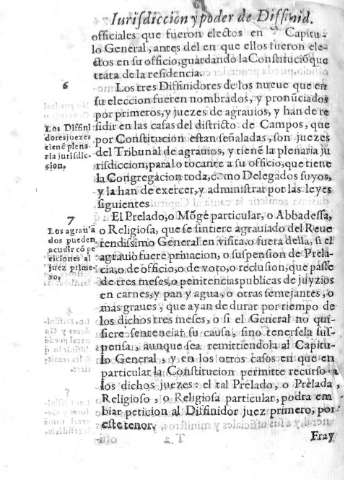 Iurisdiccion y poder de Diffinid.
officiales que fueron electos en el Capitu-
lo General, antes del en que ellos fueron ele-
ctos en su officio, guardando la Constitució que
trata de la residencia.
6
Los Diffini
dores jueces
tiené plena
ria jurisdic-
cion,
Los tres Diffinidores de los nueue que en
su eleccion fueren nombrados, y pronũciados
por primeros, y juezes de agrauios, y han de re
sidir en las casas del districto de Campos, que
por Constitucion estan señaladas, son juezes
del Tribunal de agrauios, y tiené la plenaria ju
risdiccion, para lo tocante a su officio, que tiene
la Congregacion toda, como Delegados suyos,
y la han de exercer, y administrar por las leyes
siguientes.
7
Los agrauia
dos pueden
acudir có pe
ticiones al
juez prime-
ro,
El Prelado, o Móge particular, o Abbadessa,
o Religiosa, que se sintiere agrauiado del Reue
rendissimo General en visita, o fuera della, si el
agrauio fuere priuacion, o suspension de Prela-
cia, o de officio, o de voto, o reclusion, que passe
de tres meses, o penitencias publicas de juyzios
en carnes, y pan y agua, o otras semejantes, o
mas graues, que ayan de durar por tiempo de
los dichos tres meses, o si el General no qui-
siere sentenciar su causa, sino tenersela sus-
pensa, aunque sea remitiendola al Capitu-
lo General, y en los otros casos en que en
particular la Constitucion permitte recurso a
los dichos juezes: el tal Prelado, o Prelada,
Religioso, o Religiosa particular, podra em
biar peticion al Diffinidor juez primero, por
este tenor.
T 2
Fray